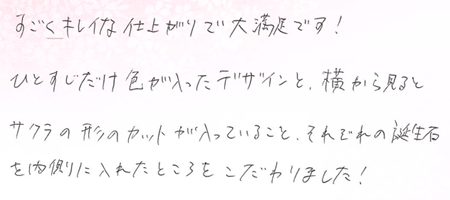 すごくキレイな仕上がりで大満足です！
ひとすじだけ色が入ったデザインと、横から見ると
サクラの形のカットが入っていること、それぞれの誕生石
を内側に入れたところをこだわりました！